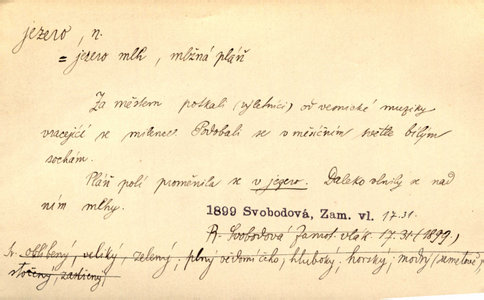 jezero, n.
= jezero mlh, mlžná pláň
Za městem potkali (výletníci) od vesnické muziky
vracející se milence. Podobali se v měsíčním světle bílým
sochám.
Pláň polí proměnila se v jezero. Daleko vlnily se nad
ním mlhy.
1899 Svobodová, Zam. vl. 17.31.
R. Svobodová Zamot. vlák. 17.31 (1899)
oblíbený, veliký, zelený; plný vědomí čeho, hluboký, horský, modrý